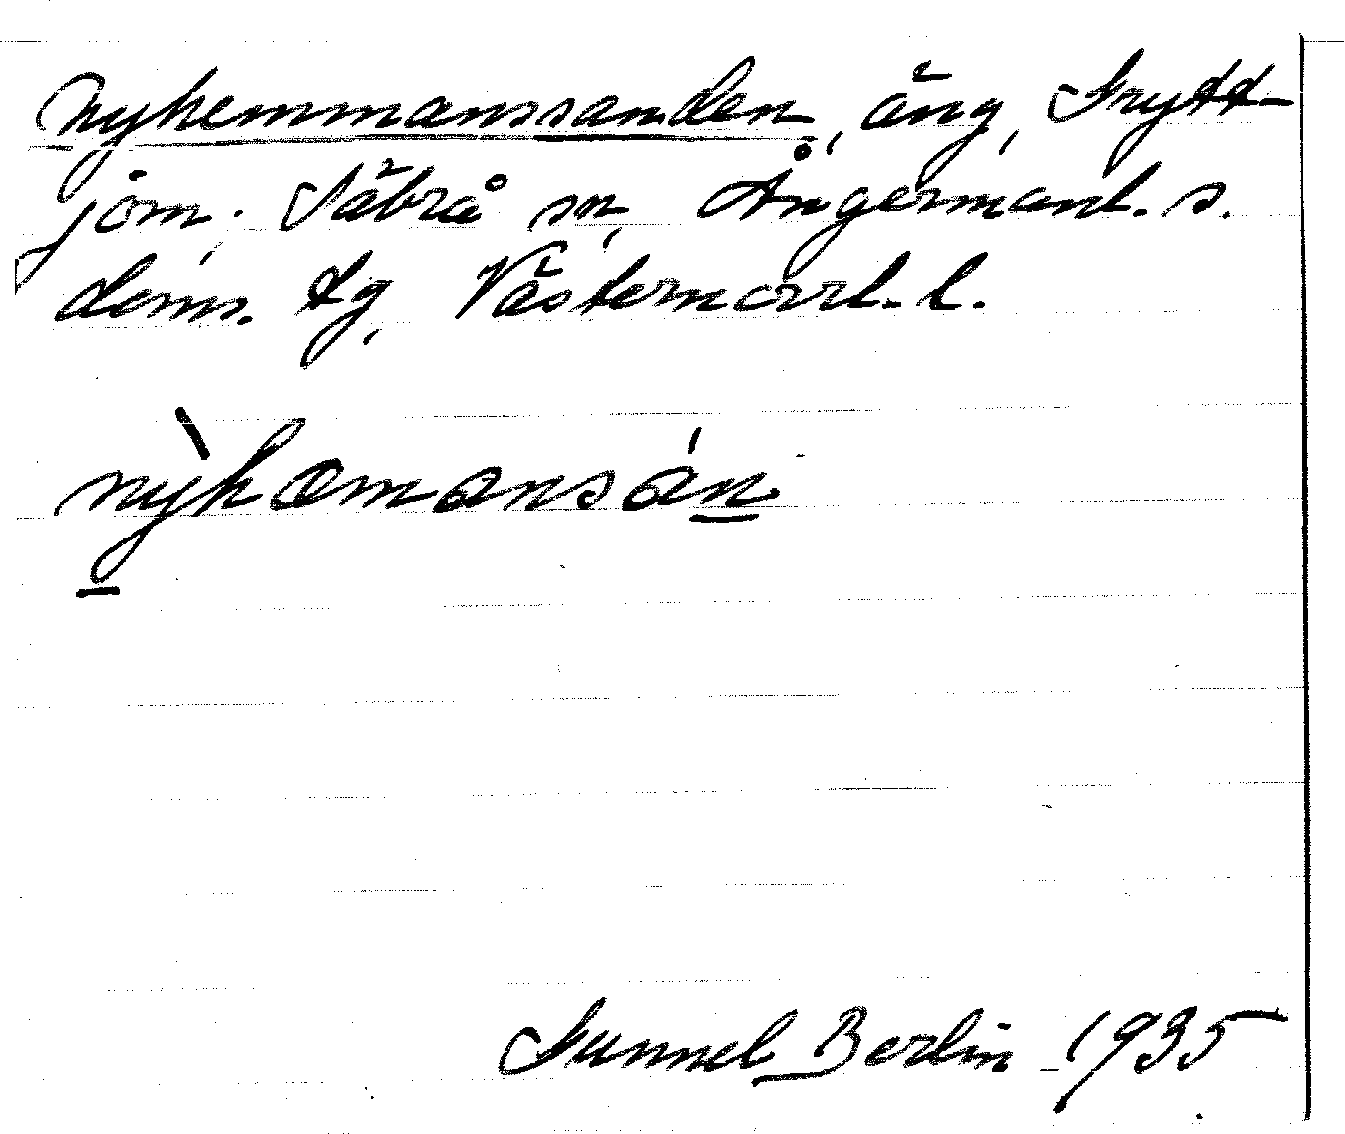 Nyhemmanssanden, äng, Grytt-
jom, Säbrå sn, Ångermanl. s.
doms. tg, Västernorrl. l.
nỳhæmansán
Gunnel Berlin 1935